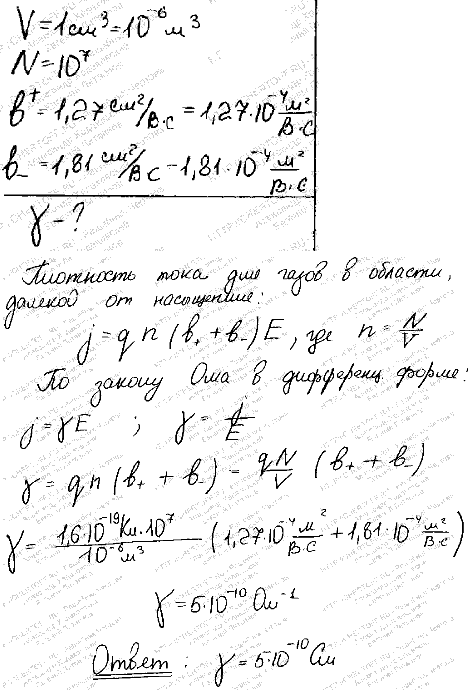 V = 1см³ = 10⁻⁶ м³
N = 10⁷
в⁺ = 1,27 см²/В·с = 1,27·10⁻⁴ м²/В·с
в₋ = 1,81 см²/В с - 1,81·10⁻⁴ м²/В·с
γ - ?
Плотность тока для газов в области,
далекой от насыщение:
j = q n (в₊ + в₋) E, где n = N/V
По закону Ома в дифференц. форме:
j = γE ; γ = j/E
γ = qn (в₊ + в₋) = qN/V (в₊ + в₋)
γ = 1,6·10⁻¹⁹Кл·10⁷/10⁻⁶м³ (1,27·10⁻⁴ м²/В·с + 1,81·10⁻⁴ м²/В·с)
γ = 5·10⁻¹⁰ Ом⁻¹
Ответ: γ = 5·10⁻¹⁰ См